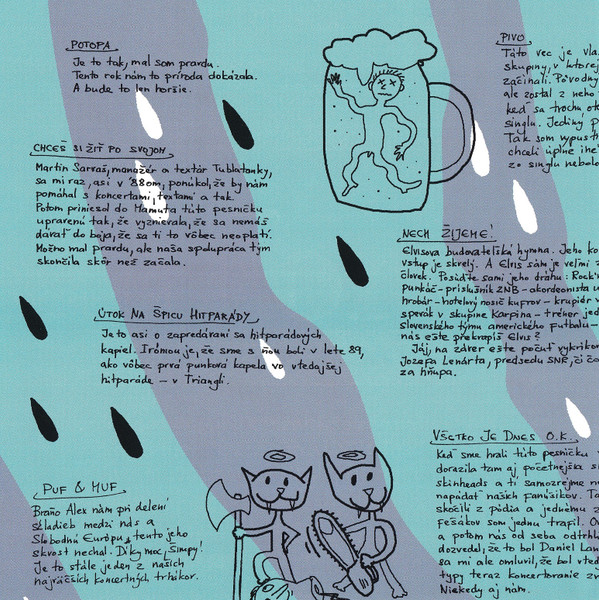 POTOPA
Je to tak, mal som pravdu.
Tento rok nám to príroda dokázala.
A bude to len horšie.
CHCEŠ SI ŽIŤ PO SVOJOM
Martin Sarvaš, manažér a textár Tublatanky,
sa mi raz, asi v '88om, ponúkol, že by nám
pomáhal s koncertami, textami a tak.
Potom priniesol do Mamuta túto pesničku
upravenú tak, že vyznievala, že sa nemáš
dávať do boja, že sa ti to vôbec neoplatí.
Možno mal pravdu, ale naša spolupráca tým
skončila skôr než začala.
ÚTOK NA ŠPICU HITPARÁDY
Je to asi o zapredávaní sa hitparádových
kapiel. Iróniou je, že sme s ňou boli v lete 89,
ako vôbec prvá punková kapela vo vtedajšej
hitparáde – v Triangli.
PUF & MUF
Braňo Alex nám pri delení
skladieb medzi nás a
Slobodnú Európu tento jeho
skvost nechal. Díky moc, Simpy!
Je to stále jeden z našich
najväčších koncertných trhákov.
PIVO
Táto vec je vla
skupiny, v ktorej
začínali. Pôvodný
ale zostal z neho
keď sa trochu ot
singlu. Jediný p
Tak som vypusti
chceli úplne iné
zo singlu nebolo
NECH ŽIJEME!
Elvisova budovateľská hymna. Jeho ko
vstup je skvelý. A Elvis sám je veľmi z
človek. Posúďte sami jeho dráhu: Rock'n
punkáč - príslušník ZNB - akordeonista u
hrobár - hotelový nosič kufrov - krupiér v
spevák v skupine Karpina - tréner jed
slovenského týmu amerického futbalu
nás ešte prekvapíš Elvis?
Jáj, na závěr ešte počuť vykríkov
Jozefa Lenárta, predsedu SNR, či čo
za hňupa.
VŠETKO JE DNES O.K.
Keď sme hrali túto pesničku v
dorazila tam aj početnejšia s
skinheads a tí samozrejme
napádať našich fanúšikov. Ta
skočili z pódia a jednému z
fešákov som jednu trafil. Ov
a potom nás od seba odtrhl
dozvedel, že to bol Daniel Lan
sa mi ale omluvil, že bol vted
typy teraz koncertovanie zr
Niekedy aj nám.